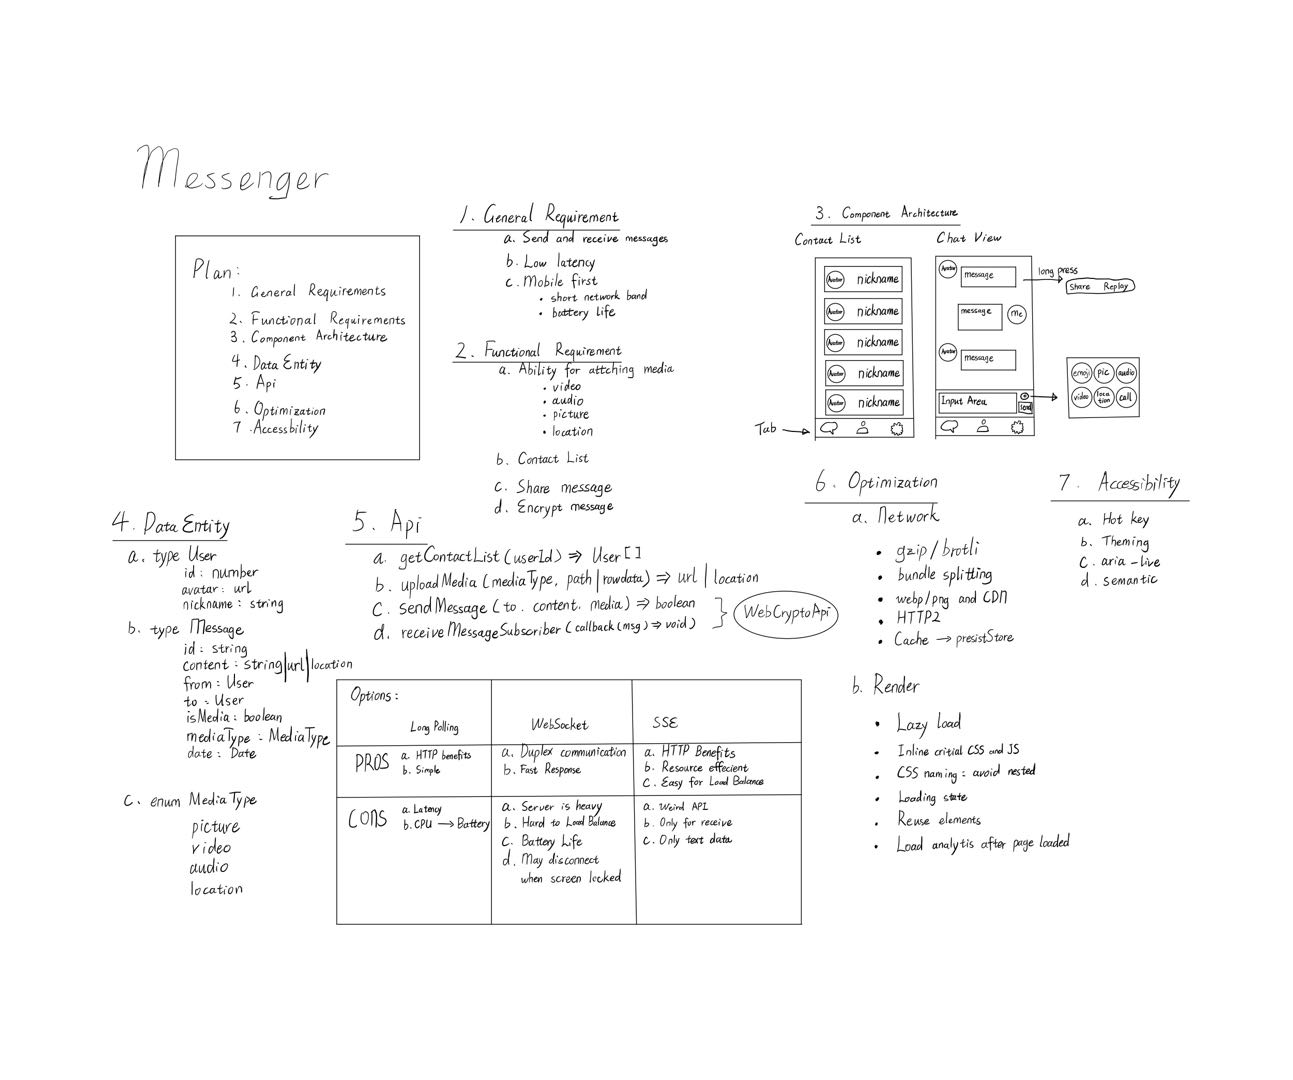 Messenger
Plan:
1. General Requirements
2. Functional Requirements
3. Component Architecture
4. Data Entity
5. Api
6. Optimization
7. Accessbility
1. General Requirement
a. Send and receive messages
b. Low latency
c. Mobile first
• short network band
• battery life
2. Functional Requirement
a. Ability for attching media
• video
• audio
• picture
• location
b. Contact List
c. Share message
d. Encrypt message
3. Component Architecture
Contact List
Avatar nickname
Avatar nickname
Avatar nickname
Avatar nickname
Avatar nickname
Tab
Chat View
Avatar message
long press
Share Replay
message me
Avatar message
Input Area
send
emoji pic audio
video location call
4. Data Entity
a. type User
id: number
avatar: url
nickname: string
b. type Message
id: string
content: string|url|location
from: User
to: User
isMedia: boolean
mediaType: MediaType
date: Date
c. enum MediaType
picture
video
audio
location
5. Api
a. getContactList(userId) ⇒ User[]
b. uploadMedia(mediaType, path|rowdata) ⇒ url|location
c. sendMessage(to. content. media) ⇒ boolean
d. receiveMessageSubscriber(callback(msg) ⇒ void)
WebCryptoApi
Options:
Long Polling WebSocket SSE
PROS
a. HTTP benefits
b. Simple
a. Duplex communication
b. Fast Response
a. HTTP Benefits
b. Resource effecient
c. Easy for Load Balance
CONS
a. Latency
b. CPU → Battery
a. Server is heavy
b. Hard to Load Balance
c. Battery Life
d. May disconnect
when screen locked
a. Weird API
b. Only for receive
c. Only text data
6. Optimization
a. Network
• gzip/brotli
• bundle splitting
• webp/png and CDN
• HTTP2
• Cache → presistStore
b. Render
• Lazy load
• Inline critial CSS and JS
• CSS naming: avoid nested
• Loading state
• Reuse elements
• Load analytis after page loaded
7. Accessibility
a. Hot key
b. Theming
c. aria-live
d. semantic